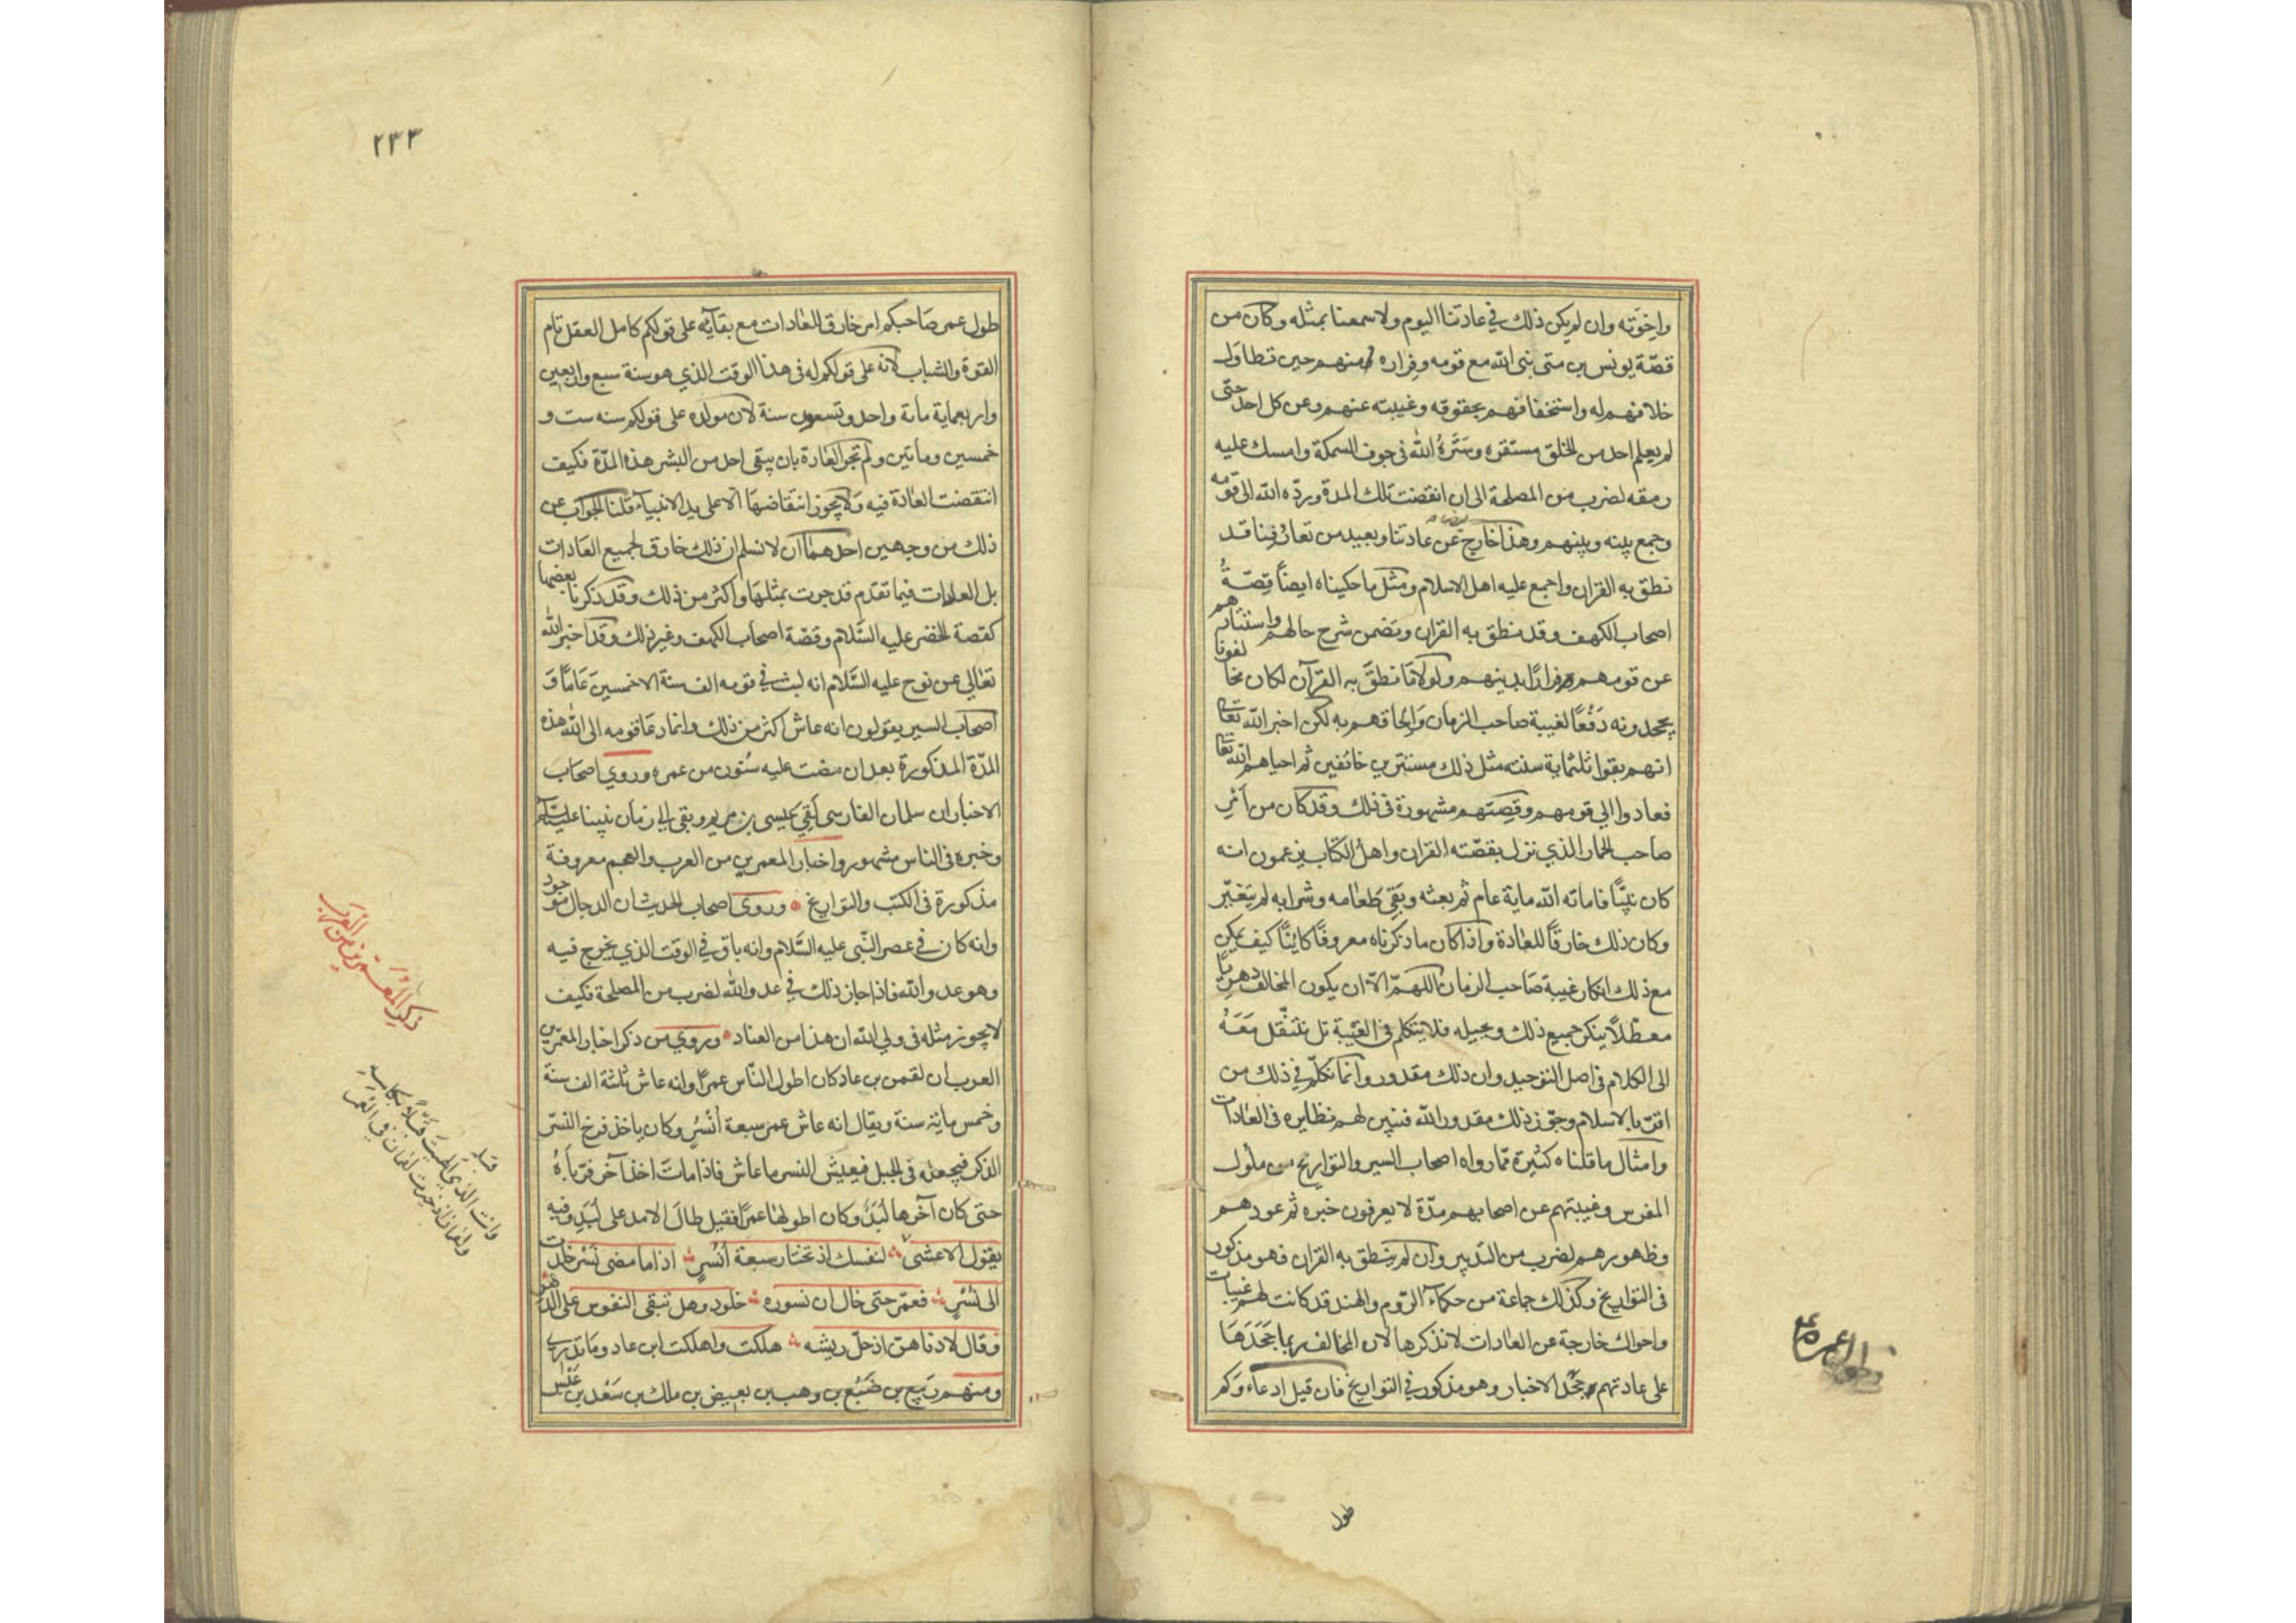 واخوته وان لم يكن ذلك في عادتنا اليوم ولا سمعنا بمثله وكان من
قصّة يونس بن متى نبى الله مع قومه وفراره منهم حين تطاول
خلافهم له واستخفافهم بحقوقه وغيبته عنهم وعن كل احد حتّى
لم يعلم احد من الخلق مستقره وسَتَرهُ الله فى جوف السمكة وامسك عليه
رمقه لضرب من المصلحة الى ان انقضت تلك المدة وردّه الله الى قومه
وجمع بينه وبينهم وهذا خارج عن عادتنا وبعيد من تعارفنا قد
نطق به القران واجمع عليه اهل الاسلام ومثل ما حكيناه ايضاً قصّةُ
اصحاب الكهف وقد نطق به القران وتضمن شرح حالهم واستتارهم
عن قومهم فراراً بدينهم ولولا ما نطقَ به القرآن لكان مخالفونا
يجحدونه دَفْعًا لغيبة صاحب الزمان وَالحاقهم به لكن اخبر الله تعالى
انهم بقوا ثلثماية سنته مثل ذلك مستترين خائفين ثم احياهم الله تعا
فعادوا الي قومهم وقصتهم مشهورة فى ذلك وقد كان من أمْرِ
صاحب الحمار الذي نزل بقصّته القران واهل الكتاب يزعمون انه
كان نبيًّا فاماته الله ماية عام ثم بعثه وبَقِي طَعامه وشرابه لم يتغيّر
وكان ذلك خارقًا للعادة واذا كان ما ذكرناه معروفًا كائنًا كيف يمكن
مع ذلك انكار غيبة صَاحب الزمان اللهمّ الّا ان يكون المخالف دهريًّا
معطّلًا ينكر جميع ذلك ويحيله فلا يتكلم فى الغيبة بل ننتقل مَعَهُ
الى الكلام فى اصل التوحيد وان ذلك مقدور وانما نكلّم في ذلك من
اقرّ بالاسلام وجوّز ذلك مقدور الله فنبين لهم نظايره فى العادات
وامثال ما قلناه كثيرة ممّا رواه اصحاب السير والتواريخ من ملوك
الفرس وغيبتهم عن اصحابهم مدّة لا يعرفون خبره ثم عودهم
وظهورهم لضرب من التدبير وان لم ينطق به القران فهو مذكور
فى التواريخ وكذلك جماعة من حكماء الروم والهند قد كانت لهم غيبات
واحوال خارجة عن العادات لا نذكرها لان المخالف ربما جَحَدَهَا
على عادتهم جحد الاخبار وهو مذكور في التواريخ فان قيل ادعاءوكم
طول
٢٣٣
طول عمر صَاحبكم امر خارق للعادات مع بقائه على قولكم كامل العقل تام
القوة والشباب لانّه على قولكم له فى هذا الوقت الذي هو سنة سبع واربعين
واربعماية ماة واحد وتسعون سنة لان مولده على قولكم سنه ست و
خمسين ومأتين ولم تجر العادة بان يبقى احد من البشر هذه المدّة فكيف
انتقضت العادة فيه وَلا يجوز انتقاضهَا الّا على يد الانبياء قلنا الجواب عن
ذلك من وجهين احدهما ان لا نسلم ان ذلك خارق لجميع العَادات
بل العادات فيما تقدم قد جرت بمثلها واكثر من ذلك وقد ذكرنا بعضها
كقصة الخضر عليه السَّلام وقصّة اصحاب الكهف وغير ذلك وقد اخبر الله
تعالى عن نوح عليه السَّلام انه لبث في قومه الف سنة الا خمسينَ عَامًا وَ
اصحاب السير يقولون انه عاش اكثر من ذلك وانما دعَا قومه الى الله هذه
المدّة المذكورة بعد ان مضت عليه ستون من عمره وروي اصحاب
الاخبار ان سلمان الفارسى لَقِي عيسى بن مريم وبقى الي زمان نبينا عليه السلم
وخبره فى الناس مشهور واخبار المعمرين من العرب والعجم معروفة
مذكورة فى الكتب والتواريخ وروى اصحاب الحديث ان الدجال موجود
وانه كان في عصر النّبى عليه السَّلام وانه باق في الوقت الذي يخرج فيه
وهو عدو الله فاذا جاز ذلك في عدو الله لضرب من المصلحة فكيف
لا يجوز مثله فى ولي الله ان هذا من العناد وروي من ذكر اخبار المعمّرين
العرب ان لقمن بن عاد كان اطول النّاس عمرا وانه عاش ثلثة الف سنة
وخمس ماية سنة ويقال انه عاش عمر سبعة أنْسُر وكان ياخذ فرخ النسر
الذكر فيجعله فى الجبل فيعيش النسر ما عاش فاذا ماتَ اخذ آخر فربّاهُ
حتى كان آخرها لُبَدٌ وكان اطولها عمرًا فقيل طالَ الامد على لُبَدٍ وفيه
يقول الاعشى لنفسك اذ تختار سبعة أنْسُرٍ اذا ما مضى نَسْر خلدت
الى نَسْرٍ فعمّر حتى خال ان نسوره خلود وهل تبقى النفوس على الدهر
وقال لادناهن اذ حلّ ريشه هلكت واهلكت ابن عاد ومَا تدرى
ومنهم رَبيع بن ضَبُع بن وهب بن بعيض بن ملك بن سَعْد بن عَبْس
ذكر المُعَمَّرِينَ مِنَ العَرَبِ
وانت الذي